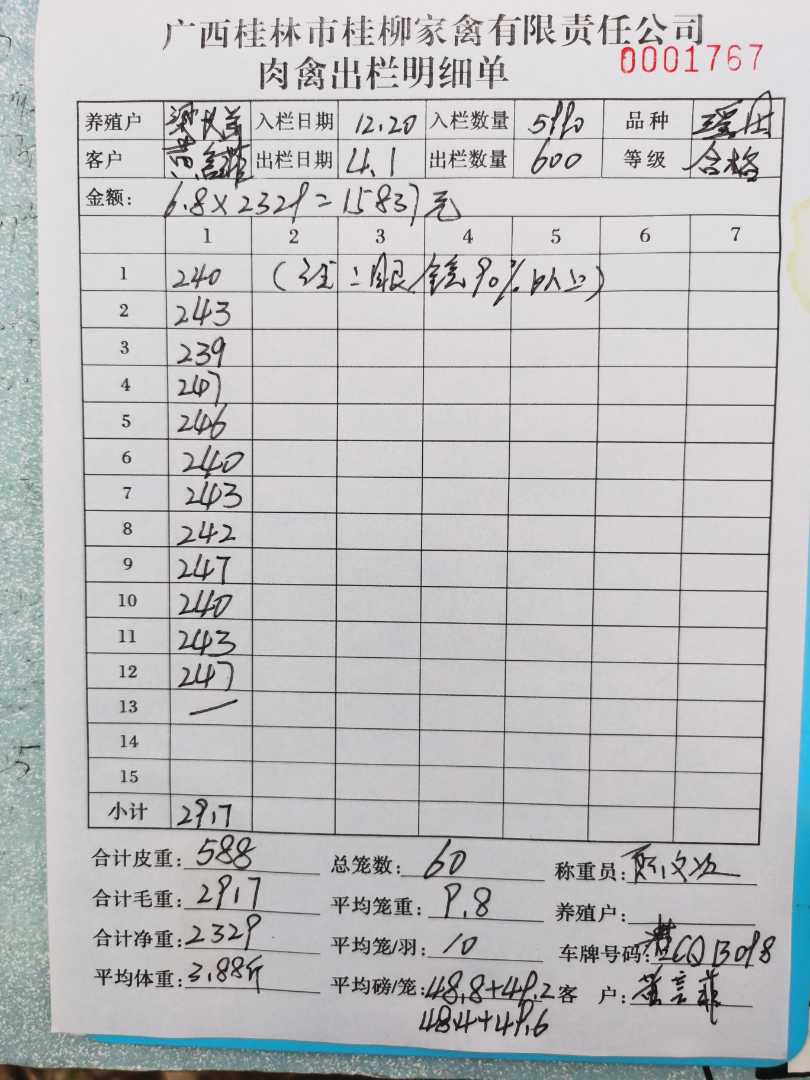 广西桂林市桂柳家禽有限责任公司
肉禽出栏明细单
0001767
养殖户 入栏日期 12.20 入栏数量 5990 品种
客户 出栏日期 4.1 出栏数量 600 等级 合格
金额: 6.8×2329=15837元
1 2 3 4 5 6 7
1 240 (注: 90%以上)
2 243
3 239
4 247
5 246
6 240
7 243
8 242
9 247
10 240
11 243
12 247
13 —
14
15
小计 2917
合计皮重: 588 总笼数: 60 称重员:
合计毛重: 2917 平均笼重: 9.8 养殖户:
合计净重: 2329 平均笼/羽: 10 车牌号码:
平均体重: 3.88斤 平均磅/笼: 48.8+49.2 客户:
48.4+49.6